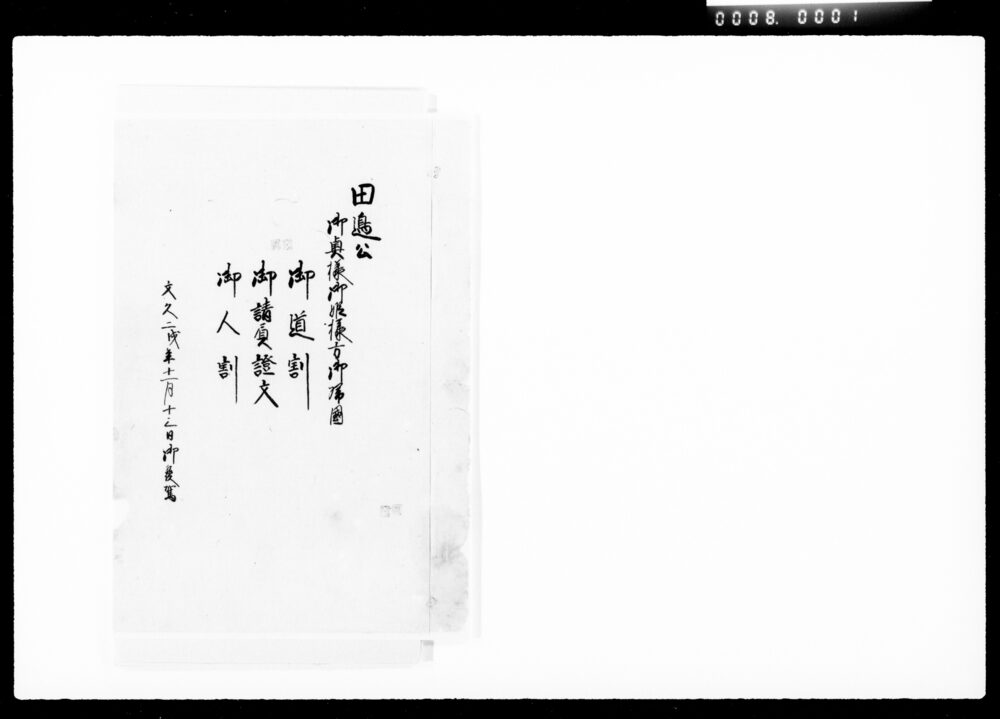 0008.0001
田邉公
御奥様御姫様方御帰國
御道割
御請負證文
御人割
文久二戌年十一月十三日御発駕